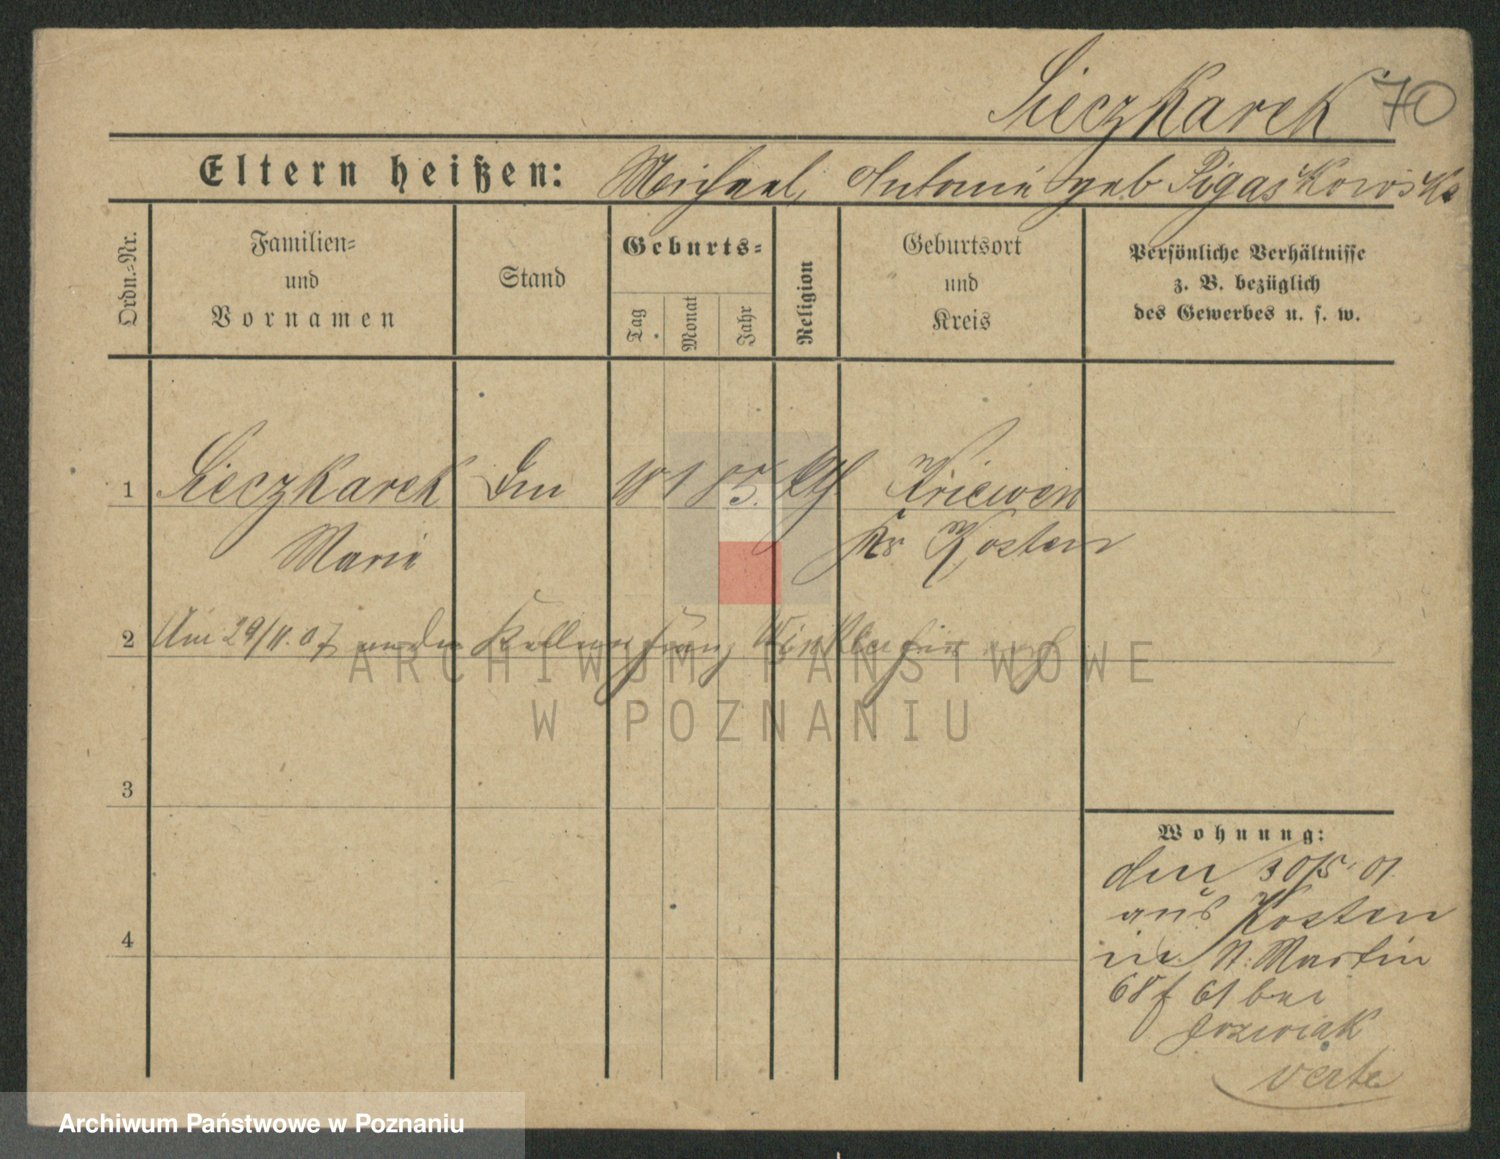 Sieczkarek 70
Eltern heißen: Michael, Antonie geb Pigaskowska
Ordn.=Nr.
Familien=
und
Vornamen
Stand
Geburts=
Tag
Monat
Jahr
Religion
Geburtsort
und
Kreis
Persönliche Verhältnisse
z. B. bezüglich
des Gewerbes u. s. w.
1 Sieczkarek 18 1 85. kth Kriewen
Marie Kr Kosten
2 Am 29/11.07 Kellner Franz
3
4
Wohnung:
den 30/5.01.
aus Kosten
in St. Martin
68 61 bei
Jozwiak
verte
ARCHIWUM PAŃSTWOWE
W POZNANIU
Archiwum Państwowe w Poznaniu